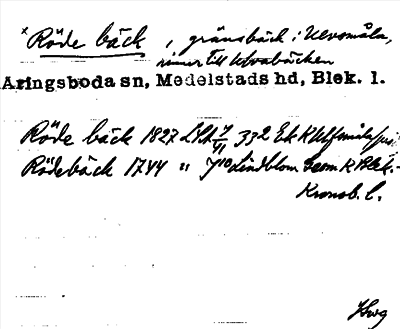 x Röde bäck, gränsbäck i Ulvsmåla,
rinner till Ulvabäcken
Aringsboda sn, Medelstads hd, Blek. l.
Röde bäck 1827 LSA 332 Ek K
Rödebäck 1744 " Lindblom Geom K Blek.-
Kronob. l.
HSwg